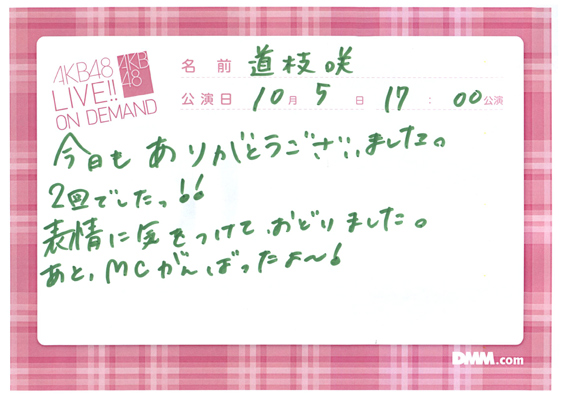 AKB48
LIVE!!
ON DEMAND
AKB
48
名 前 道枝咲
公演日 10月 5日 17:00公演
今日も ありがとうございました。
2回でしたっ!!
表情に気をつけて、おどりました。
あと、MCがんばったよ〜!
DMM.com